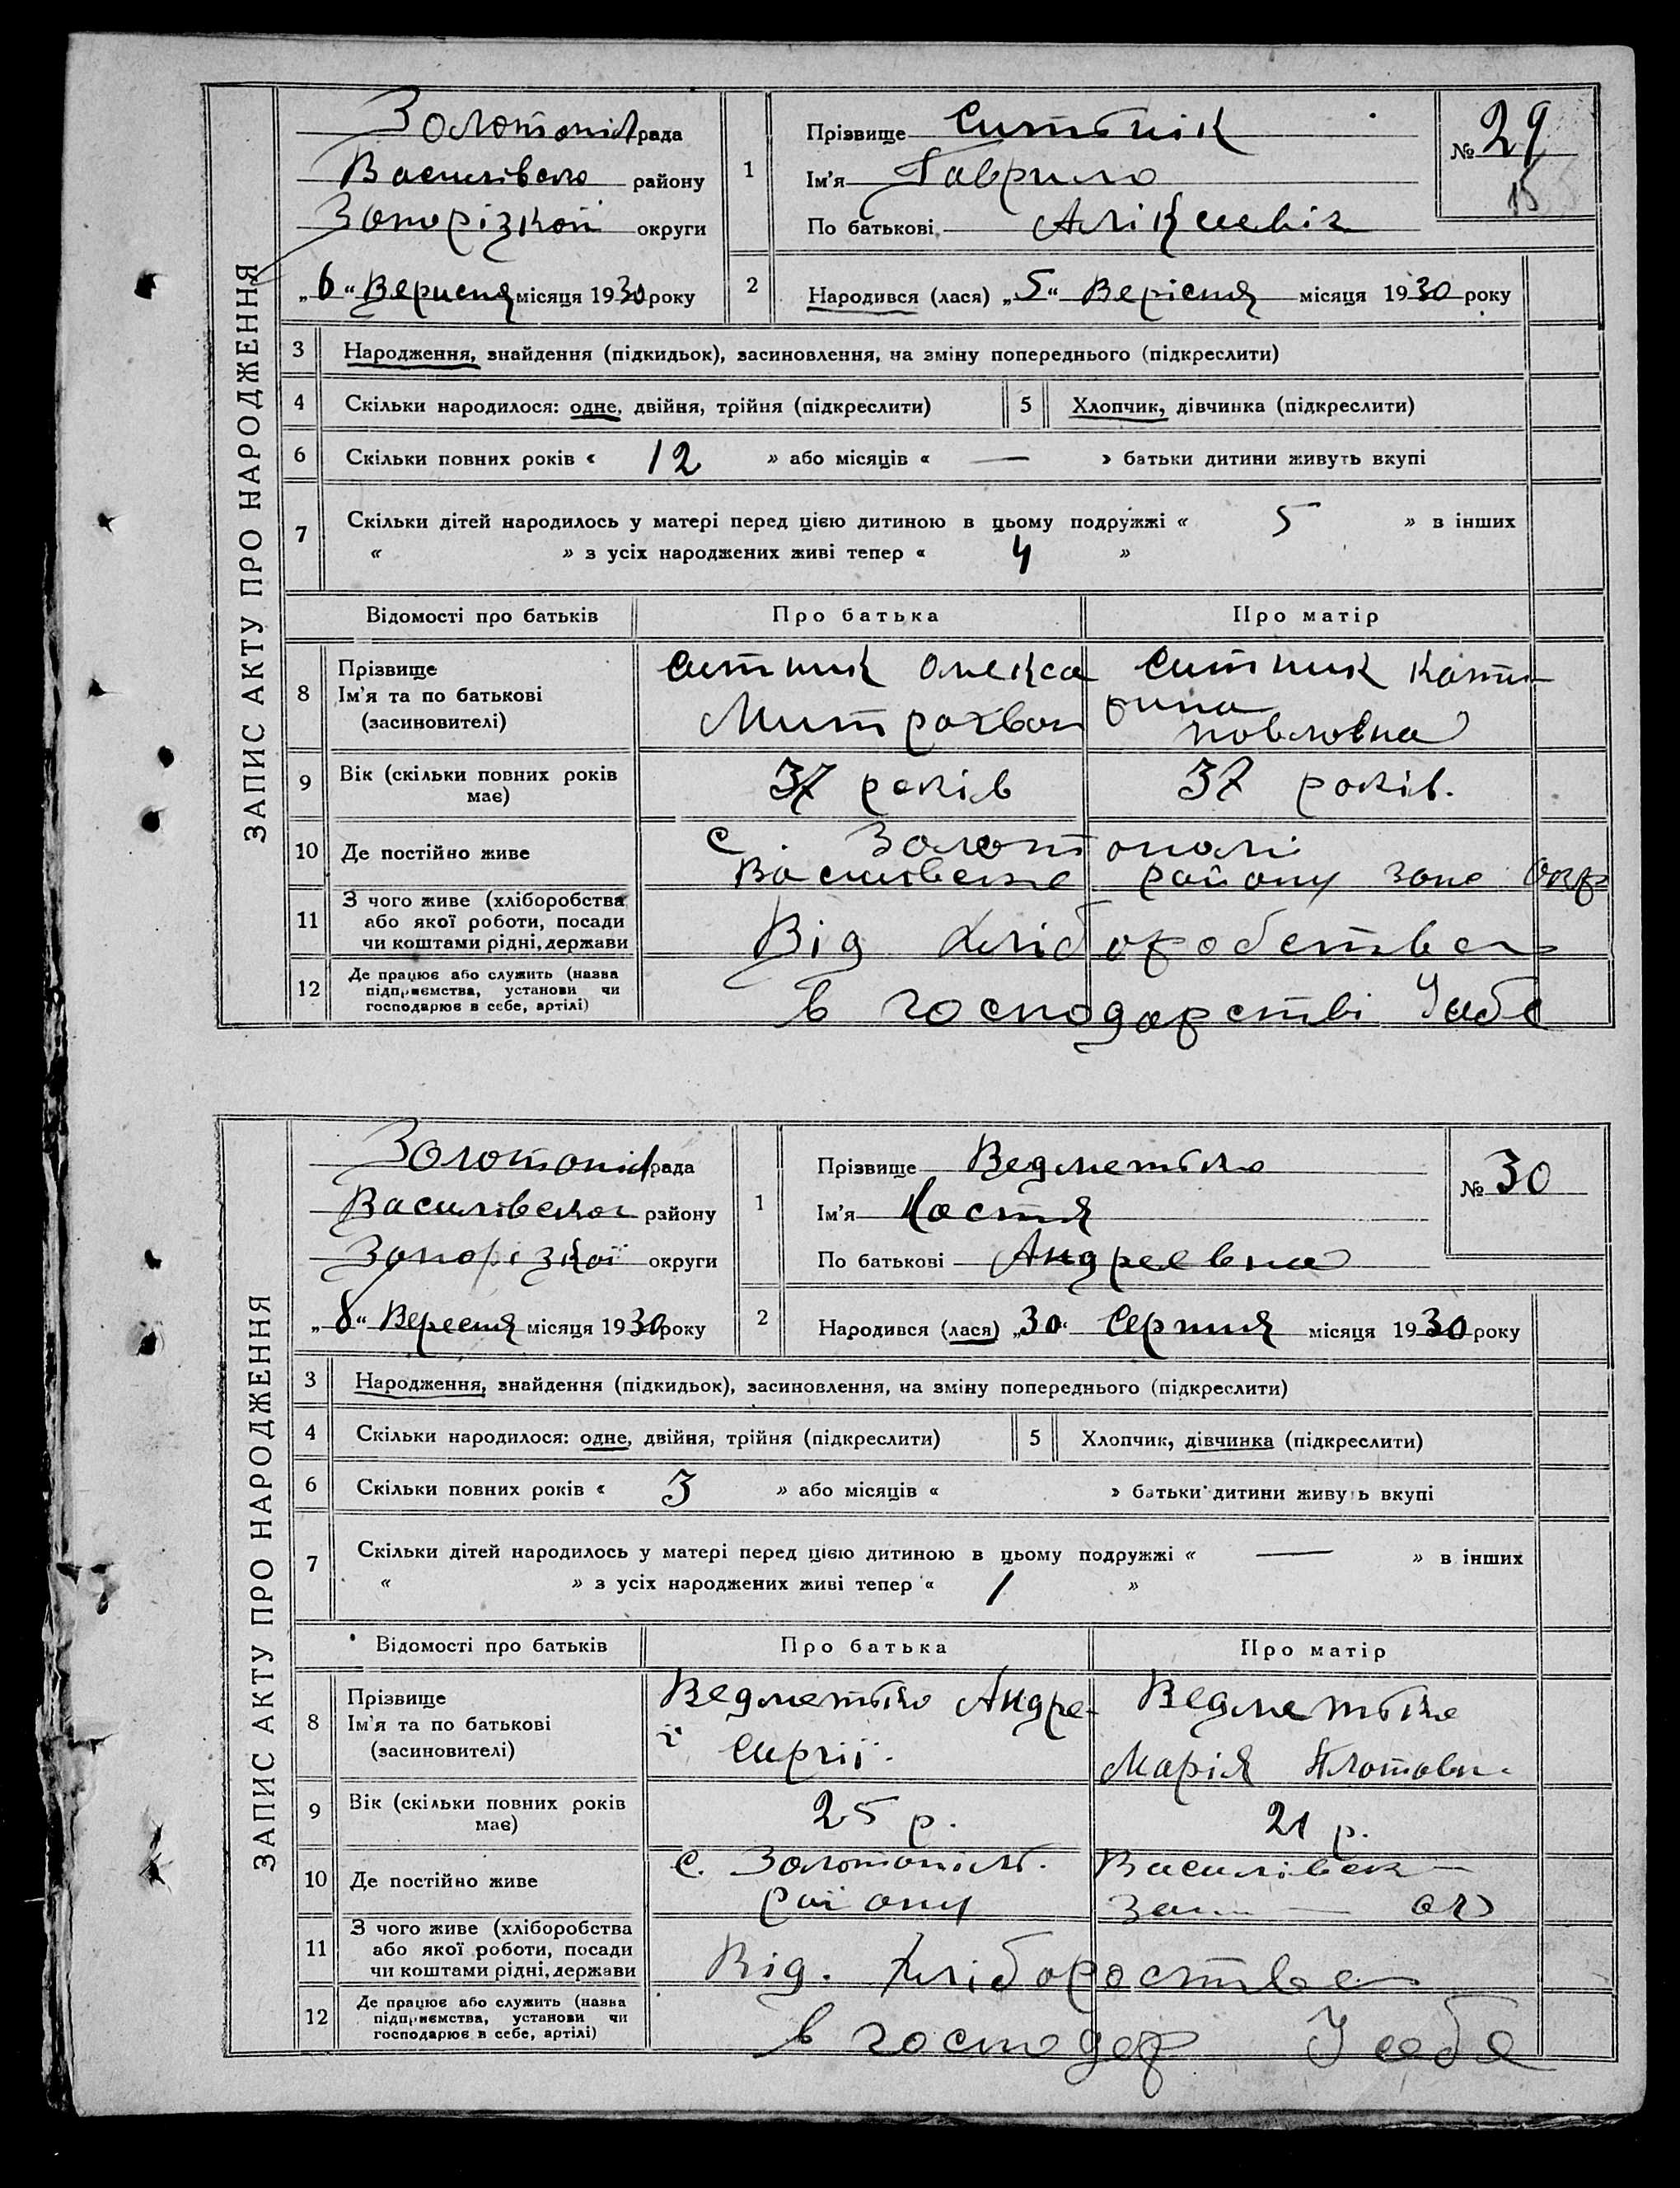 ЗАПИС АКТУ ПРО НАРОДЖЕННЯ
Золотопіл рада
Василівсько району
Запорізкой округи
„6“ Верисня місяця 1930 року
1
Прізвище Ситьнік
Ім'я Гаврило
По батькові Аліксиевіч
№ 29
2
Народився (лася) „5“ Верісня місяця 1930 року
3 Народження, знайдення (підкидьок), засиновлення, на зміну попереднього (підкреслити)
4 Скільки народилося: одне, двійня, трійня (підкреслити) 5 Хлопчик, дівчинка (підкреслити)
6 Скільки повних років « 12 » або місяців « — » батьки дитини живуть вкупі
7 Скільки дітей народилось у матері перед цією дитиною в цьому подружжі « 5 » в інших
« » з усіх народжених живі тепер « 4 »
Відомості про батьків Про батька Про матір
8 Прізвище
Ім'я та по батькові
(засиновителі)
Ситник Олекса
Митрохван
Ситник Кати
рина
Повловна
9 Вік (скільки повних років
має)
37 років 37 років.
10 Де постійно живе
с. Золотополі
Василовське району Запо окр
11 З чого живе (хліборобства
або якої роботи, посади
чи коштами рідні, держави
Від хліборобства
12 Де працює або служить (назва
підприємства, установи чи
господарює в себе, артілі)
в господарстві У себе
ЗАПИС АКТУ ПРО НАРОДЖЕННЯ
Золотопіл рада
Василівського району
Запорізкої округи
„8“ Вересня місяця 1930 року
1
Прізвище Ведметько
Ім'я Настя
По батькові Андреевна
№ 30
2
Народився (лася) „30“ Серпня місяця 1930 року
3 Народження, знайдення (підкидьок), засиновлення, на зміну попереднього (підкреслити)
4 Скільки народилося: одне, двійня, трійня (підкреслити) 5 Хлопчик, дівчинка (підкреслити)
6 Скільки повних років « 3 » або місяців « » батьки дитини живуть вкупі
7 Скільки дітей народилось у матері перед цією дитиною в цьому подружжі « — » в інших
« » з усіх народжених живі тепер « 1 »
Відомості про батьків Про батька Про матір
8 Прізвище
Ім'я та по батькові
(засиновителі)
Ведметько Андре-
й Сиргії.
Ведметьке
Марія Плотовн
9 Вік (скільки повних років
має)
25 р. 21 р.
10 Де постійно живе
с. Золотопіль. Василівськ
району
11 З чого живе (хліборобства
або якої роботи, посади
чи коштами рідні, держави
Від. хлібороства
12 Де працює або служить (назва
підприємства, установи чи
господарює в себе, артілі)
в господар У себе